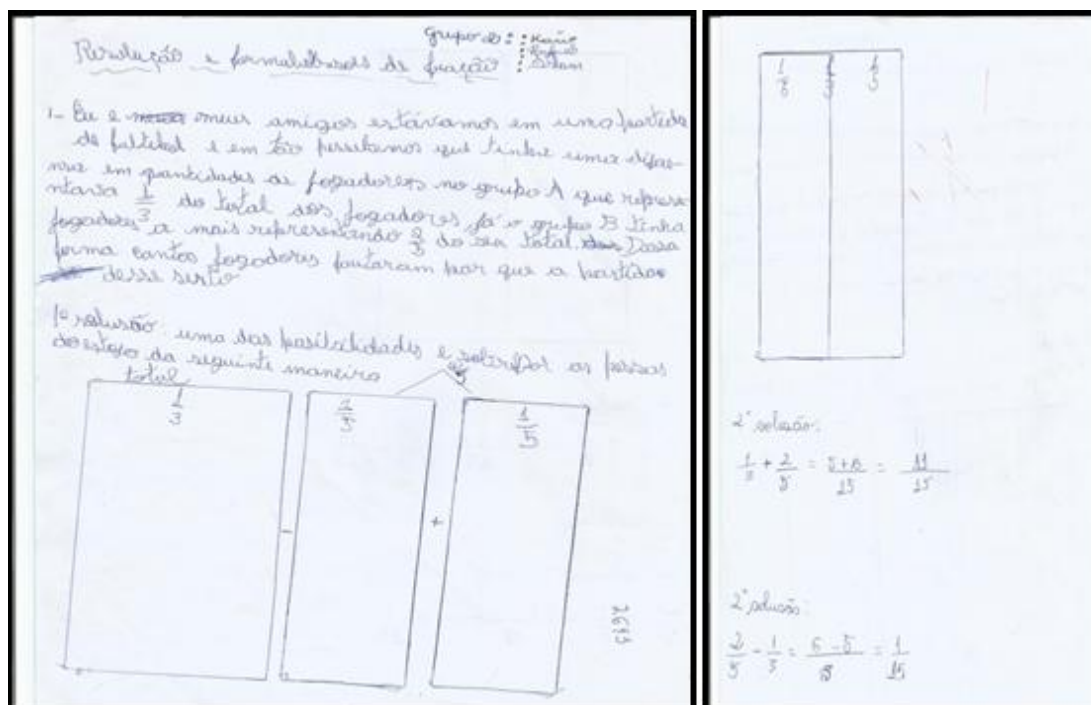 grupo de:
Resolução e formulações de fração
1- Eu e meus amigos estávamos em uma partida
de futebol e em tão persebemos que tinha uma difere-
nsa em quantidades de jogadores no grupo A que represe
ntava 1/3 do total dos jogadores já o grupo B tinha
jogadores a mais representando 2/5 do seu total. Dasa
forma cantos jogadores foutaram par que a partidas
desse serto
1ª solusão: uma das posibilidades e as pessoas
do estopo da seguinte maneira
total
1/3
1/5
1/5
-
+
2693
1/5
1/5
2ª solusão:
1/3 + 2/5 = 5+6/15 = 11/15
2ª solusão:
2/5 - 1/3 = 6-5/15 = 1/15